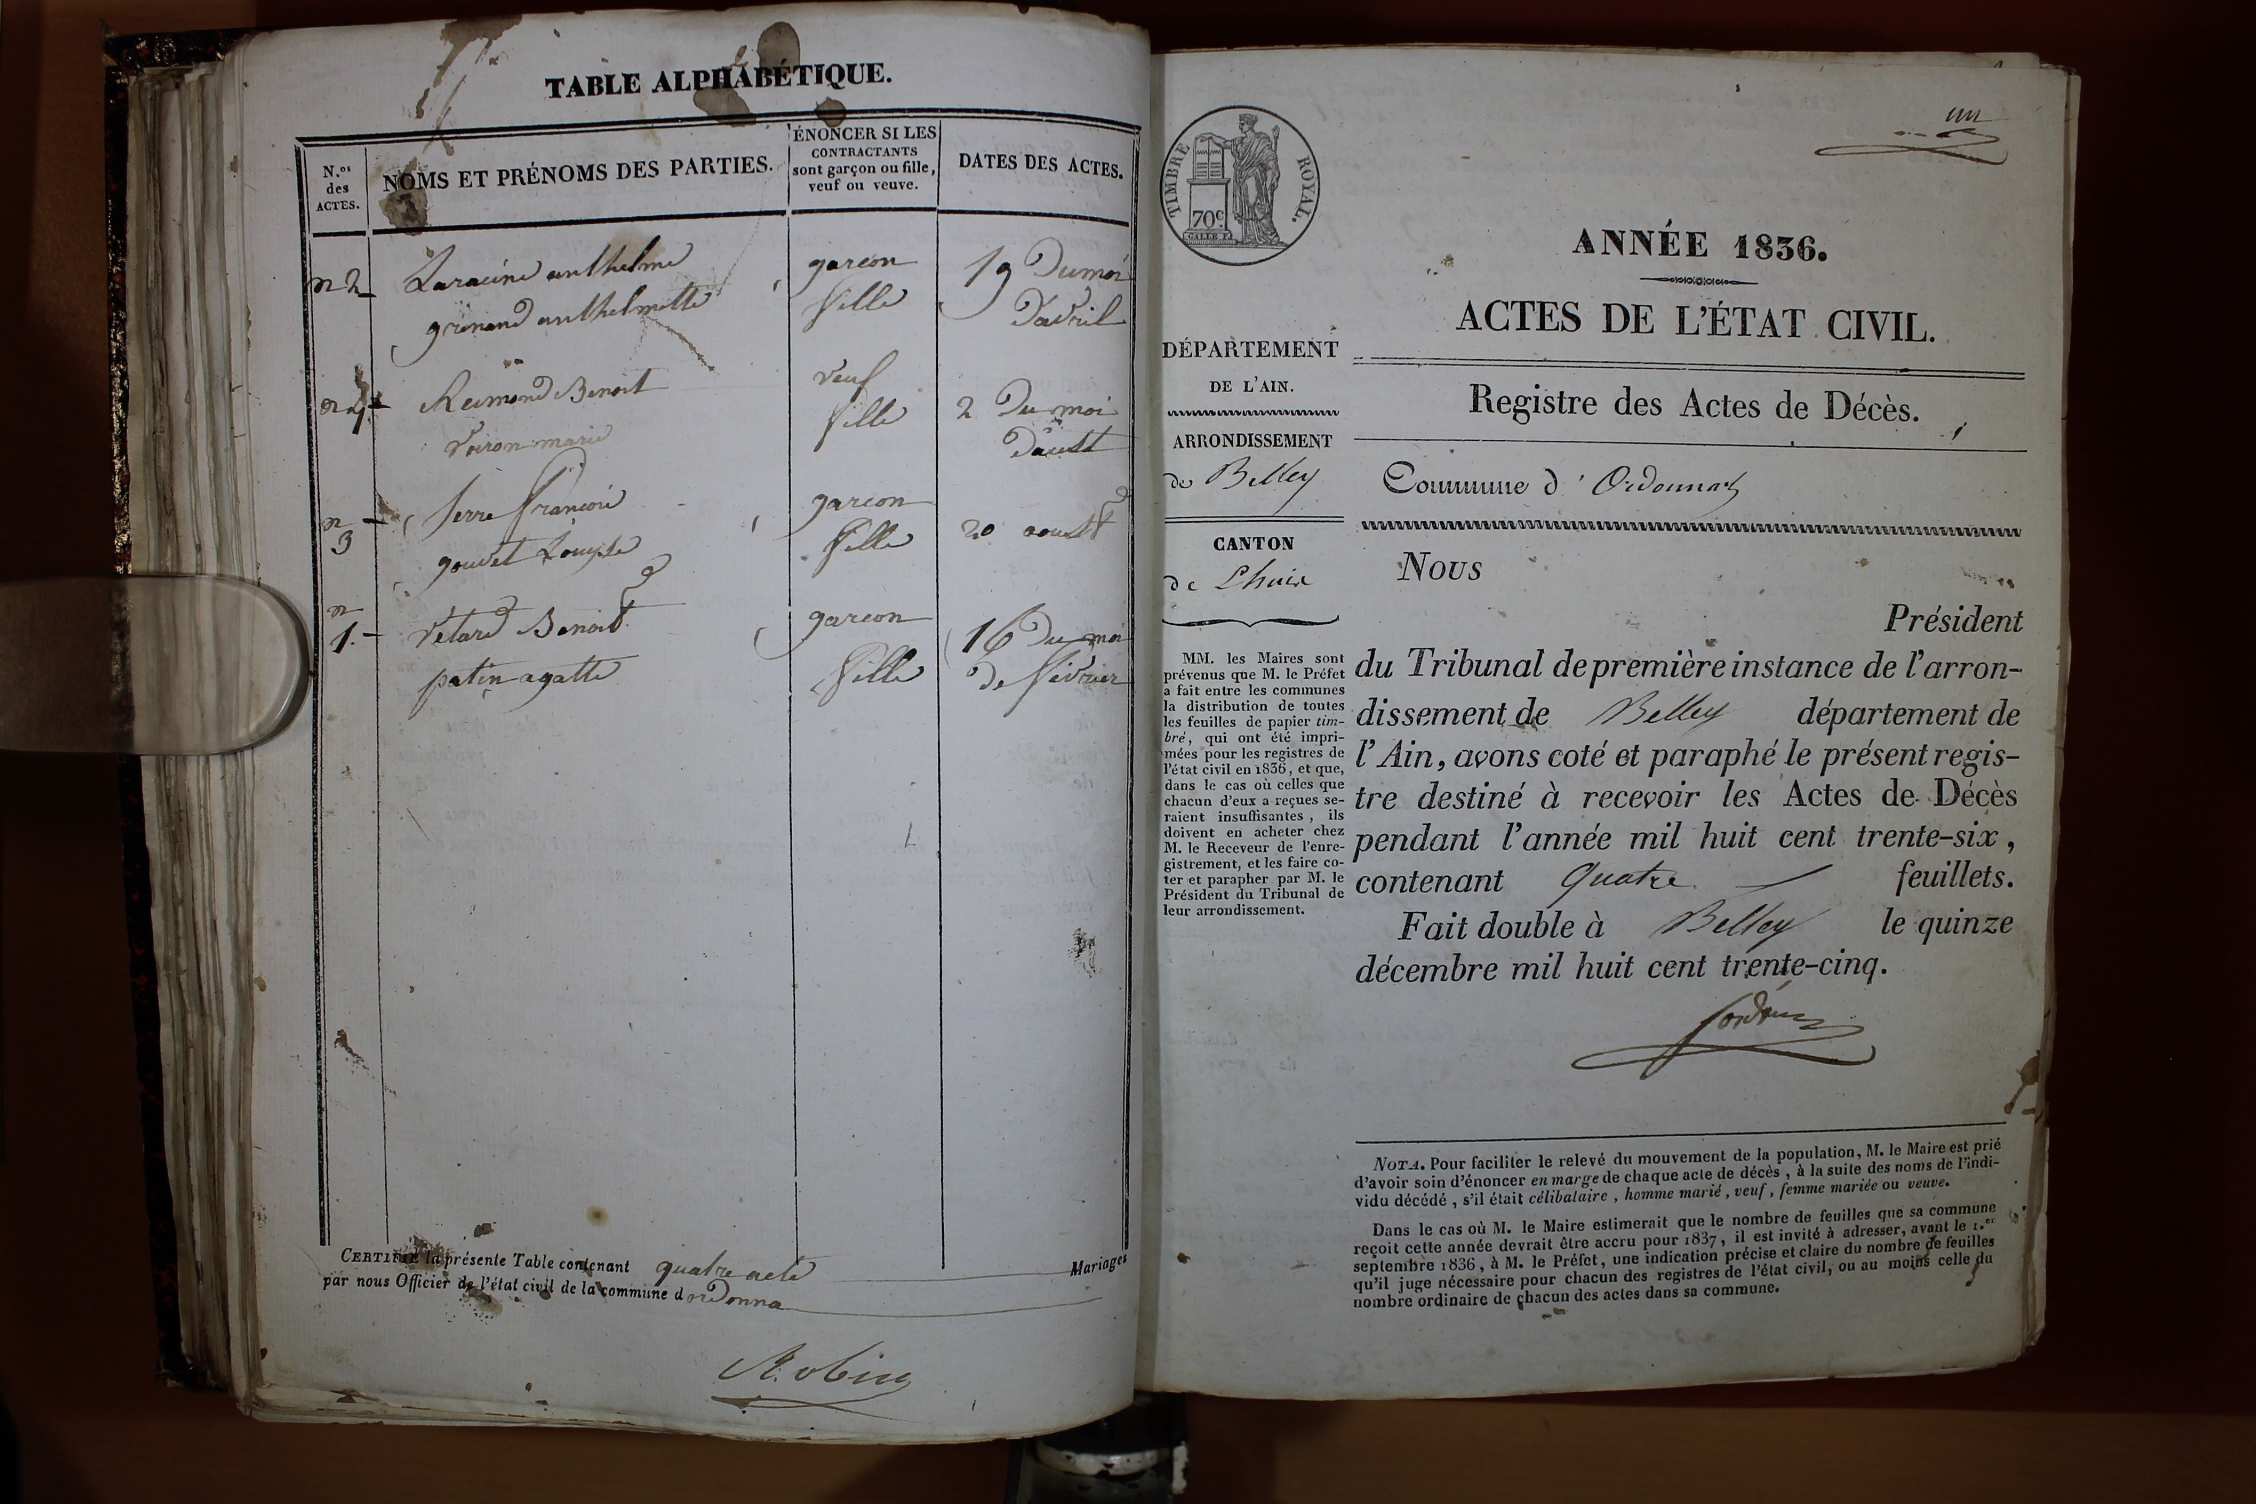 TABLE ALPHABÉTIQUE.
N.os
des
ACTES.
NOMS ET PRÉNOMS DES PARTIES.
ÉNONCER SI LES
CONTRACTANTS
sont garçon ou fille,
veuf ou veuve.
DATES DES ACTES.
n 2 Laracine anthelme garcon 19 Du moi
grinand anthelmette fille D'avril
Reimond Benoit veuf
Voiron marie fille 2 Du moi
Daoust
n 3 Serre françois garcon
gouvet Louise fille 20 aoust
n 1. Vetard Benoit garcon 16 Du moi
patin agatte fille De février
CERTIFIÉ la présente Table contenant quatre acte Mariages
par nous Officier de l'état civil de la commune d ordonna
Robin
un
TIMBRE ROYAL.
70c
ANNÉE 1836.
ACTES DE L'ÉTAT CIVIL.
Registre des Actes de Décès.
DÉPARTEMENT
DE L'AIN.
ARRONDISSEMENT
de Belley
CANTON
de Lhuis
MM. les Maires sont
prévenus que M. le Préfet
a fait entre les communes
la distribution de toutes
les feuilles de papier tim-
bré, qui ont été impri-
mées pour les registres de
l'état civil en 1836, et que,
dans le cas où celles que
chacun d'eux a reçues se-
raient insuffisantes, ils
doivent en acheter chez
M. le Receveur de l'enre-
gistrement, et les faire co-
ter et parapher par M. le
Président du Tribunal de
leur arrondissement.
Commune d'Ordonnaz
Nous
Président
du Tribunal de première instance de l'arron-
dissement de Belley département de
l'Ain, avons coté et paraphé le présent regis-
tre destiné à recevoir les Actes de Décès
pendant l'année mil huit cent trente-six,
contenant quatre feuillets.
Fait double à Belley le quinze
décembre mil huit cent trente-cinq.
NOTA. Pour faciliter le relevé du mouvement de la population, M. le Maire est prié
d'avoir soin d'énoncer en marge de chaque acte de décès, à la suite des noms de l'indi-
vidu décédé, s'il était célibataire, homme marié, veuf, femme mariée ou veuve.
Dans le cas où M. le Maire estimerait que le nombre de feuilles que sa commune
reçoit cette année devrait être accru pour 1837, il est invité à adresser, avant le 1.er
septembre 1836, à M. le Préfet, une indication précise et claire du nombre de feuilles
qu'il juge nécessaire pour chacun des registres de l'état civil, ou au moins celle du
nombre ordinaire de chacun des actes dans sa commune.